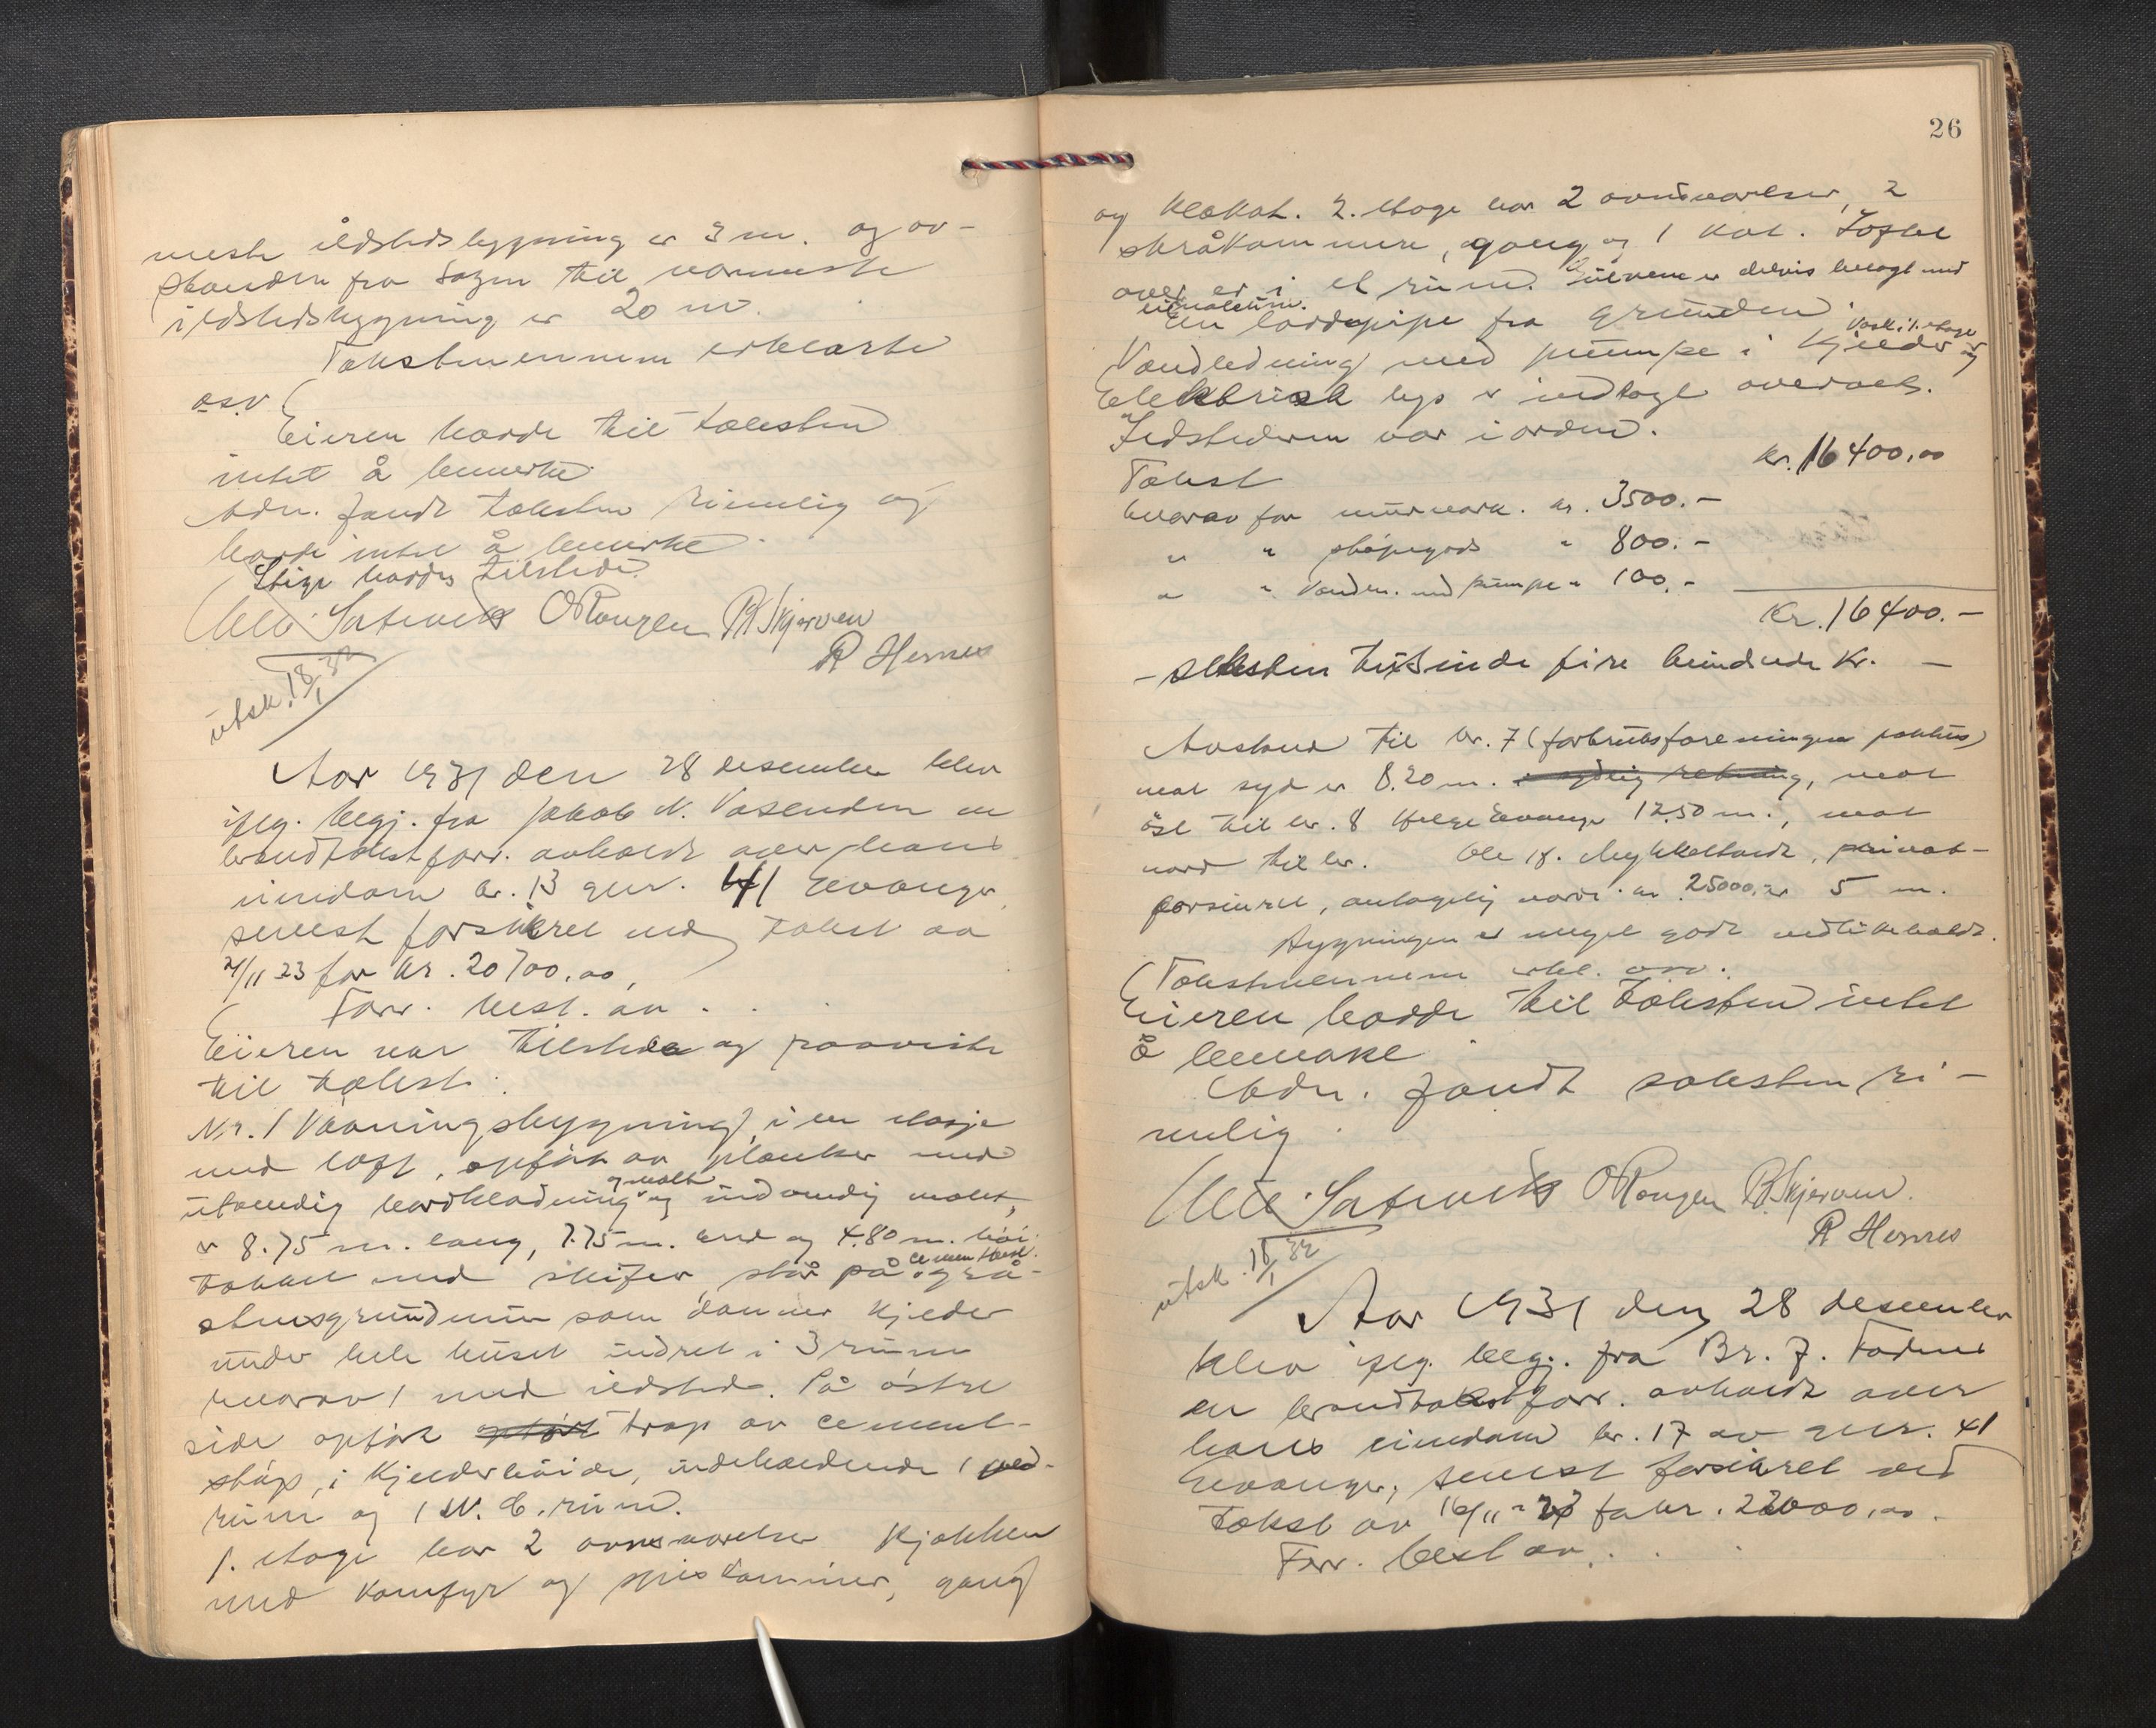 neste ildstedsbygning er 3 m. og av-
standen fra Sagen til nærmeste
ildstedsbygning er 20 m.
Takstmennene erklærte
osv.
Eieren hadde til taksten
intet å bemerke.
Adv. fandt taksten rimelig og
hadde intet å bemerke.
Stige hadde tilstede.
O Rongen R Skjerven
R Hernes
utsk. 18/1 32
Aar 1931 den 28 desember blev
iflg. begj. fra Jakob N. Vasenden en
brandtakstforr. avholdt over hans
eiendom br. 13 gnr. 41 Evanger,
senest forsikret ved takst av
/11 23 for kr. 20700,00,
Forr. best. av . .
Eieren var tilstede og paaviste
til takst:
Nr. 1 Vaaningsbygning, i en etasje
med loft, opført av planker med
utvendig bordklædning og malt og indvendig malet,
er 8.75 m. lang, 7.75 m. bred og 4.80 m. høi.
Takket med skifer, står på cementpust. grå-
stensgrundmur som danner kjelder
under hele huset indret i 3 rum
hvorav 1 med ildsted. På østre
side opført opført trap av cement-
støp, i kjelderhøide, indeholdende 1 ved-
rum og 1 W. C. rum.
1. etage har 2 ovnsværelser kjøkken
med komfyr og spiskammer, gang
26
og klækot. 2. etage har 2 ovnsværelser, 2
skråkammere, gang og 1 kot. Loftet
over er i et rum. Gulvene er delvis belagt med
linoleum.
En loddepipe fra grunden.
Vandledning med pumpe i kjelder og vask i 1. etage
Elektrisk lys er indlagt overalt.
Ildstederne var i orden.
Takst kr. 16400,00
hvorav for murverk. kr. 3500.-
" " støpegods " 800.-
" " Vandl. med pumpe " 100.-
Kr. 16400.-
- seksten tusinde fire hundrede kr. -
Avstand til br. 7 (forbruksforeningens pakhus)
mot syd er 8.20 m. i sydlig retning, mot
øst til br. 8 Helge Evanger 12.50 m., mot
nord til br. Ole K. Mykkeltvedt, privat-
forsikret, antagelig værdi kr. 25000, er 5 m.
Bygningen er meget godt vedlikeholdt.
Takstmennene erkl. osv.
Eieren hadde til taksten intet
å bemerke.
Adv. fandt taksten ri-
melig.
O Rongen R. Skjerven.
R Hernes
utsk. 18/1 32
Aar 1931 den 28 desember
blev iflg. begj. fra Br. J. Fadnes
en brandtakstforr. avholdt over
hans eiendom br. 17 av gnr. 41
Evanger, senest forsikret ved
takst av 16/11 - 23 for kr. 22000,00.
Forr. best av. . .